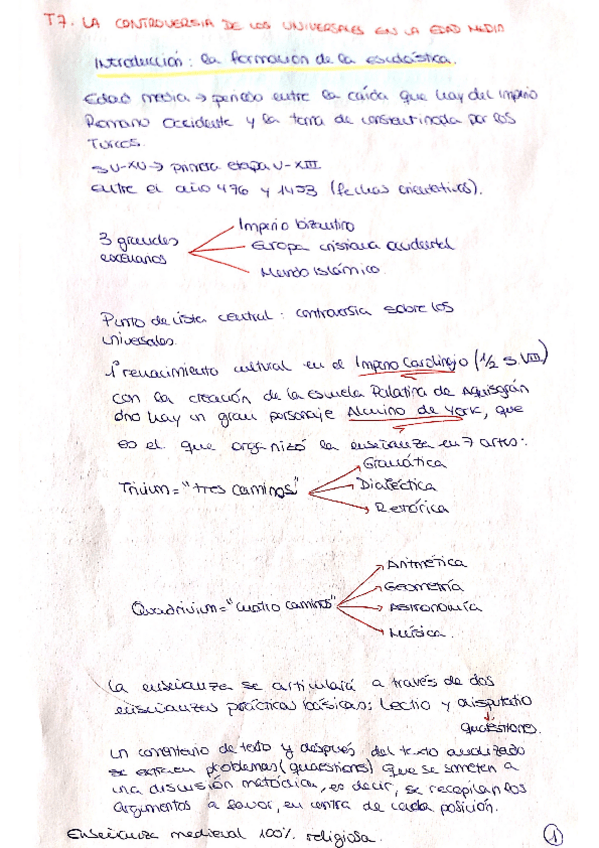 T7. LA CONTROVERSIA DE LOS UNIVERSALES EN LA EDAD MEDIA
Introducción: la formación de la escolástica.
Edad media → periodo entre la caída que hay del Imperio
Romano Occidente y la toma de Constantinopla por los
Turcos.
S V-XV → primera etapa V-XIII
Entre el año 476 y 1453 (fechas orientativas).
3 grandes
escenarios
Imperio bizantino
Europa cristiana occidental
Mundo islámico.
Punto de vista central: controversia sobre los
universales.
1º renacimiento cultural en el Imperio Carolingio (1/2 S.VIII)
con la creación de la escuela Palatina de Aquisgrán
dnd hay un gran personaje Alcuino de York, que
es el que organizó la enseñanza en 7 artes:
Trivium = "tres caminos"
Gramática
Dialéctica
Retórica
Quadrivium = "cuatro caminos"
Aritmética
Geometría
Astronomía
Música.
La enseñanza se articulará a través de dos
enseñanzas prácticas básicas: Lectio y disputatio
quaestiones.
Un comentario de texto y después del texto analizado
se extraen problemas (quaestiones) que se someten a
una discusión metódica, es decir, se recopilan los
argumentos a favor, en contra de cada posición.
Enseñanza medieval 100% religiosa.
1